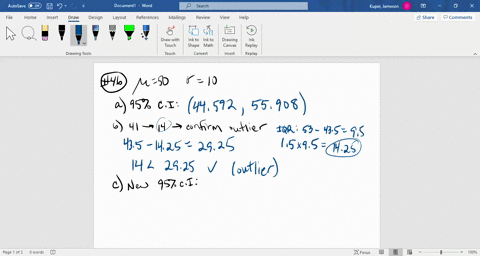 AutoSave Off Document1 - Word Kuper, Jameson
File Home Insert Draw Design Layout References Mailings Review View Help Share Comments
Draw with Touch Ink to Shape Ink to Math Drawing Canvas Ink Replay
Drawing Tools Touch Convert Insert Replay
#46 μ=50 σ=10
a) 95% C.I: (44.592, 55.908)
b) 41 → 14 → confirm outlier IQR: 53 - 43.5 = 9.5
43.5 - 14.25 = 29.25 1.5 x 9.5 = 14.25
14 < 29.25 ✓ (outlier)
c) New 95% C.I:
Page 1 of 2 0 words Focus